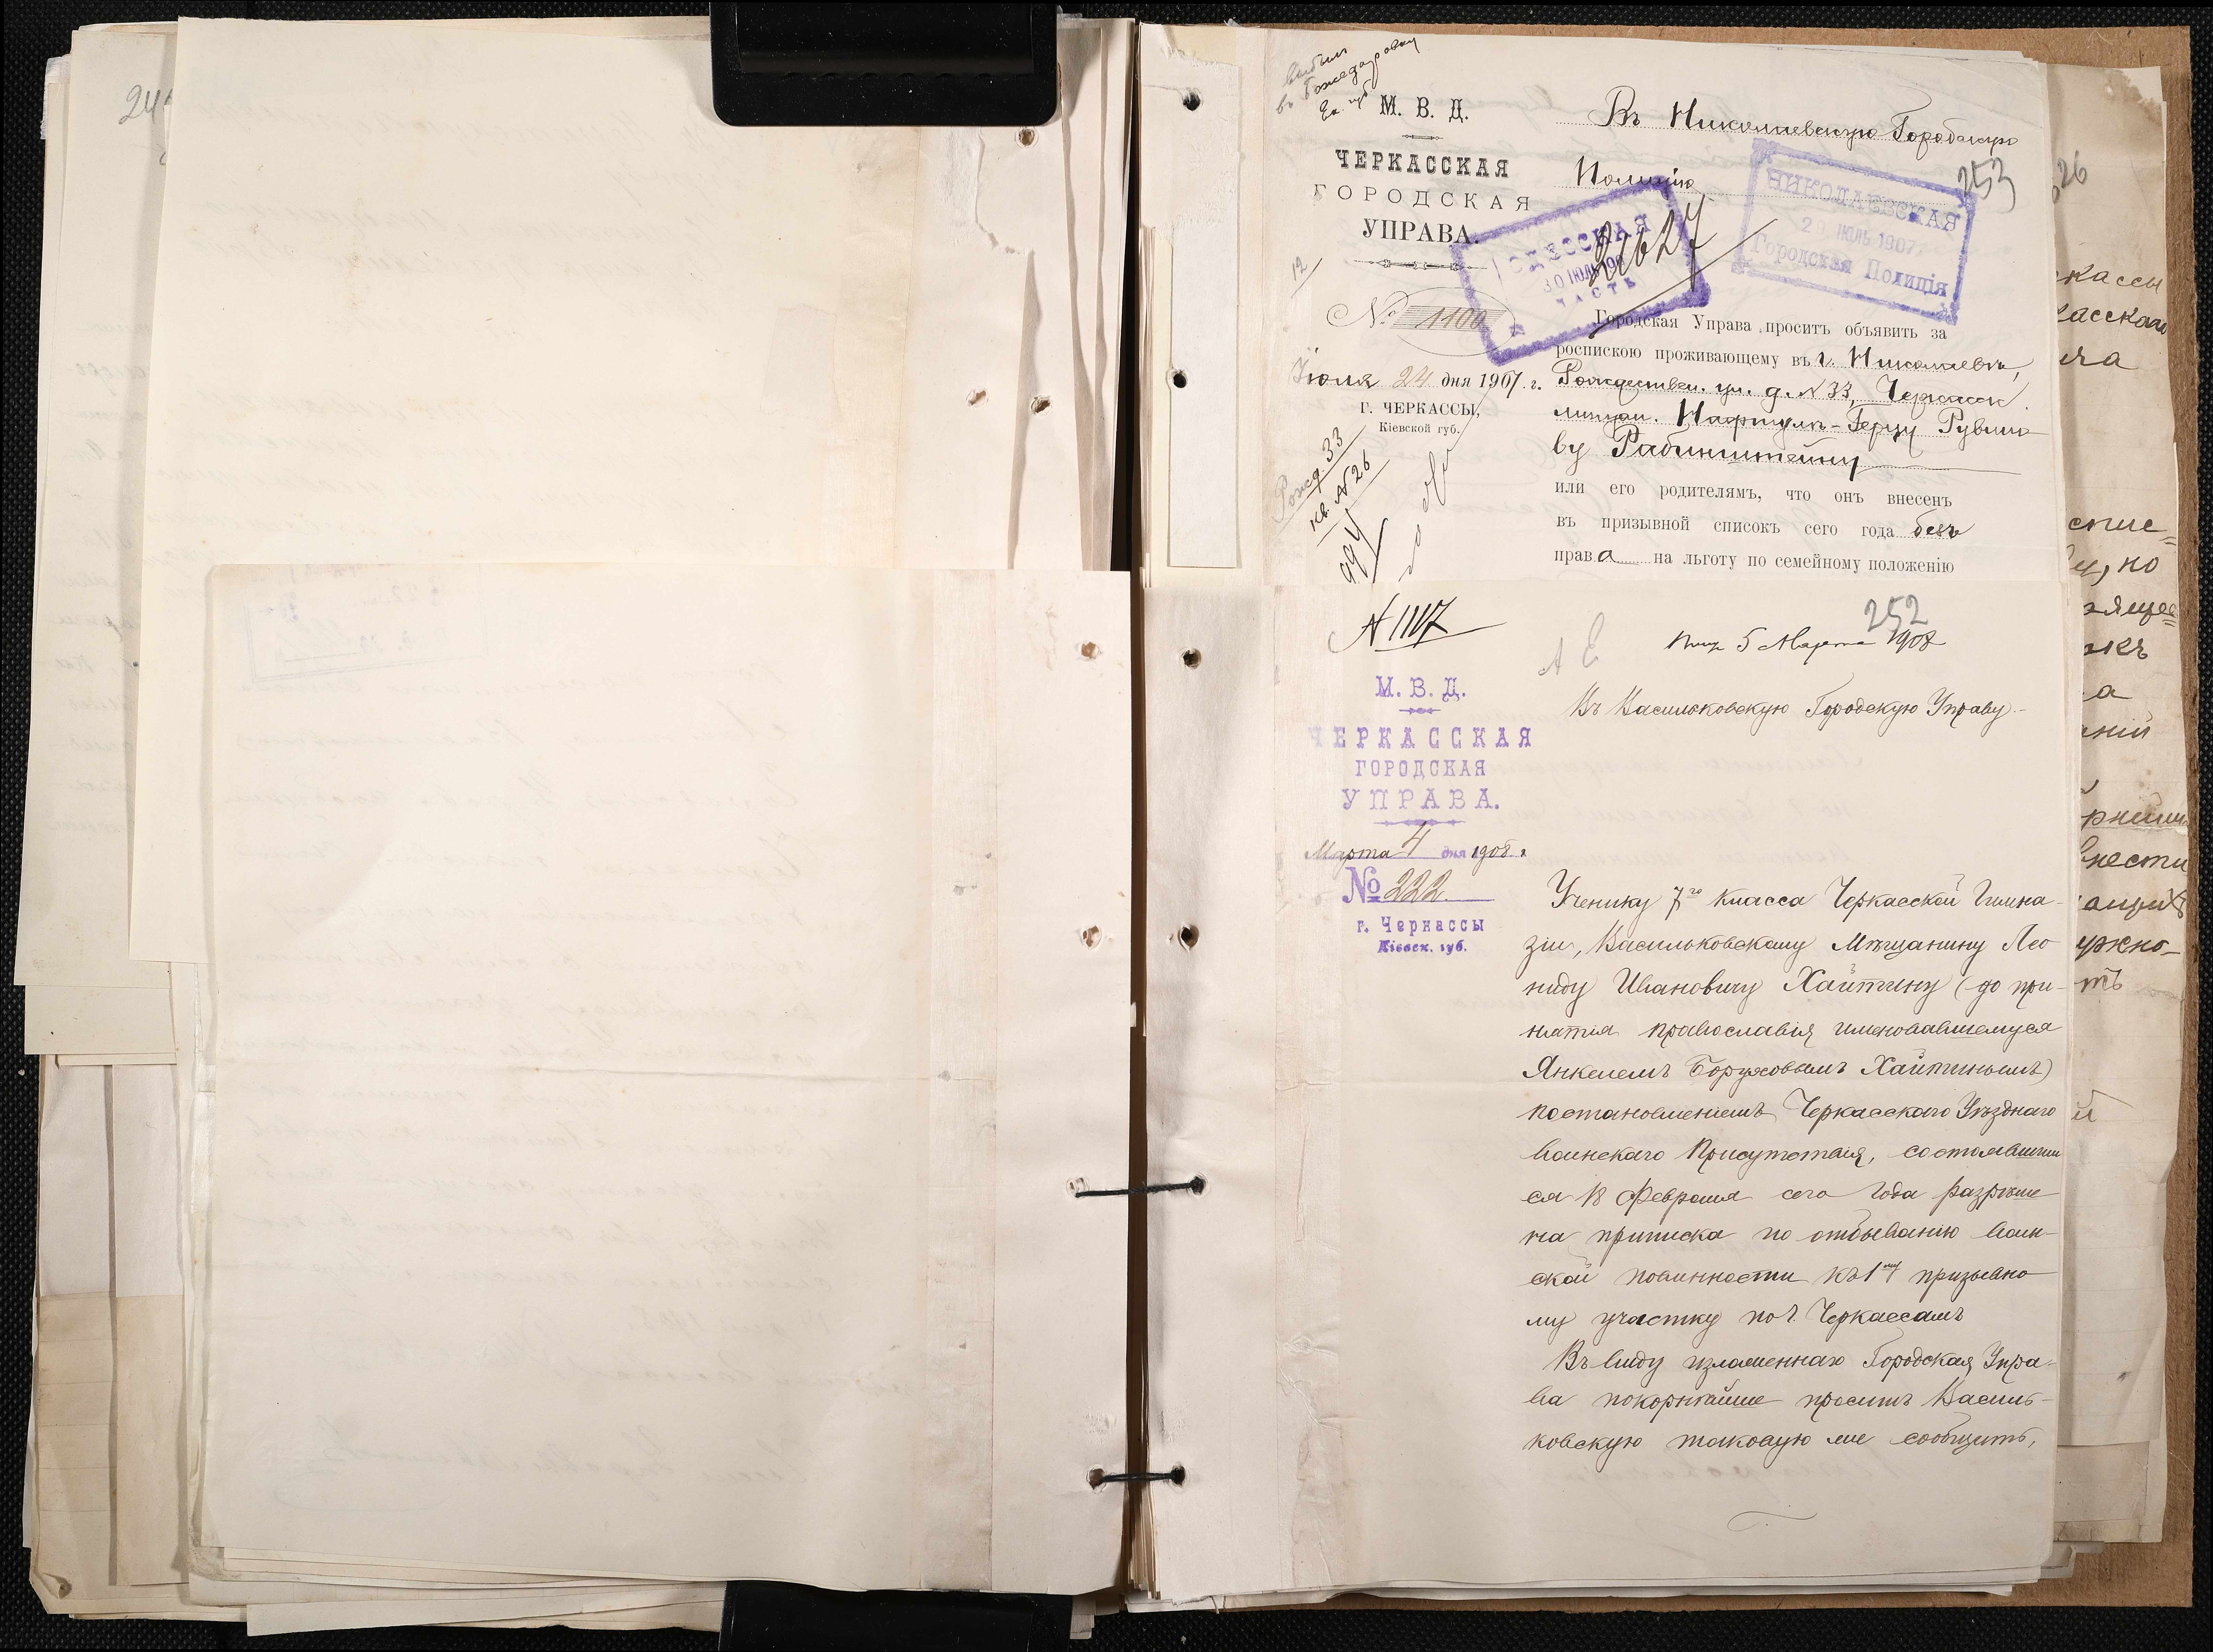 24
выбыл
въ Божедаровку
Ек. губ.
М. В. Д.
ЧЕРКАССКАЯ
ГОРОДСКАЯ
УПРАВА.
12
№ 1100
Іюля 24 дня 1907 г.
Г. ЧЕРКАССЫ,
Кіевской губ.
Рожд. 33
кв. № 26
994
Въ Николаевскую Городскую
Полицію
253
НИКОЛАЕВСКАЯ
29 ІЮЛЬ 1907
Городская Полиція
ОДЕССКАЯ
30 ІЮЛЬ 190
ЧАСТЬ
21627
Городская Управа проситъ объявить за
роспискою проживающему въ г. Николаевѣ,
Рождествен. ул. д. № 33, Черкасск.
мѣщан. Нафтулъ-Герцу Рувино
ву Рабинштейну
или его родителямъ, что онъ внесенъ
въ призывной списокъ сего года безъ
права на льготу по семейному положенію
№ 1117
252
5 Марта 1908
М. В. Д.
ЧЕРКАССКАЯ
ГОРОДСКАЯ
УПРАВА.
Марта 4 дня 1908 г.
№ 222
г. Черкассы
Кіевск. губ.
Въ Васильковскую Городскую Управу.
Ученику 7го класса Черкасской Гимна-
зіи, Васильковскому Мѣщанину Лео
ниду Ивановичу Хайтину (до при-
нятія православія именовавшемуся
Янкелемъ Боруховымъ Хайтинымъ)
постановленіемъ Черкасскаго Уѣзднаго
воинскаго Присутствія, состоявшим
ся 18 Февраля сего года разрѣше
на приписка по отбыванію воин-
ской повинности къ 1му призывно
му участку по г. Черкассамъ
Въ виду изложеннаго Городская Упра-
ва покорнѣйше проситъ Василь-
ковскую таковую же сообщить,
626
кассы
касскаго
ича
спис=
но
зящее=
жъ
а
ній
рнѣйше
внести
ужно-
тъ
й